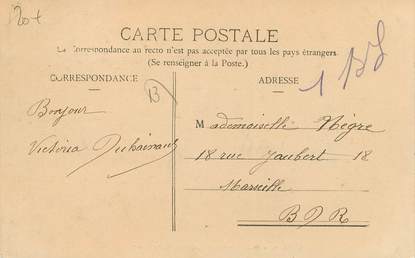 20+
CARTE POSTALE
La Correspondance au recto n'est pas acceptée par tous les pays étrangers
(Se renseigner à la Poste.)
CORRESPONDANCE
ADRESSE
B
1
Bonjour
Victoria
Mademoiselle Nègre
18 rue Jaubert 18
Marseille
B D R